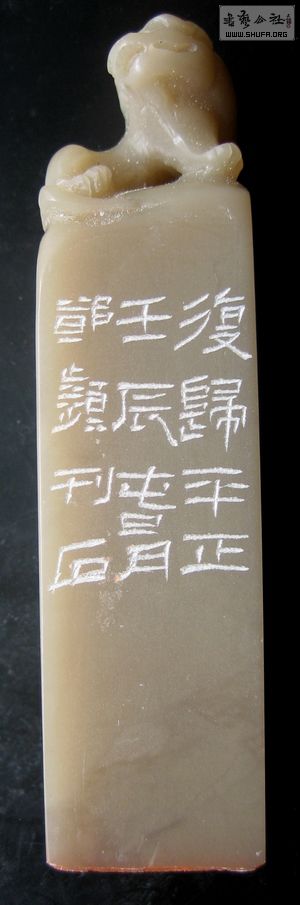 書藝公社
WWW.SHUFA.ORG
復歸平正
壬辰萅月
刊石